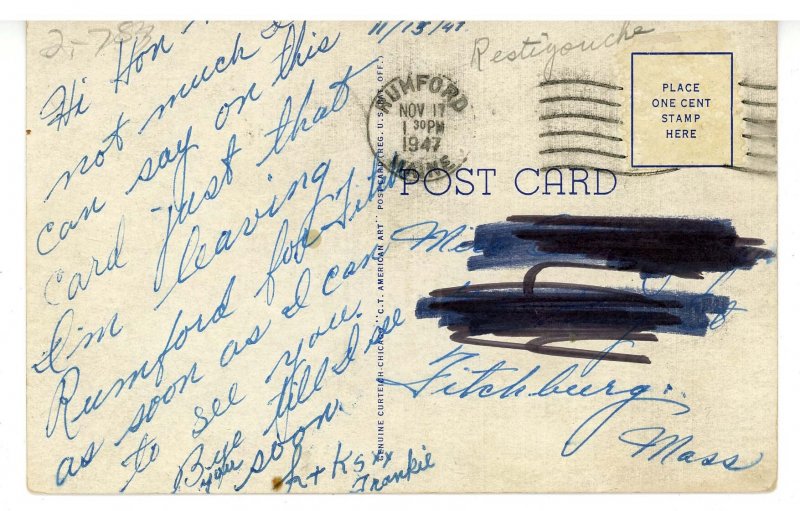 2-783
11/15/47
Restigouche
Hi Hon
not much I
can say on this
card just that
I'm leaving
Rumford for Fitch
as soon as I can
to see you.
Bye till I see
you soon.
h + Ks xx
Frankie
GENUINE CURTEICH-CHICAGO "C.T. AMERICAN ART" POST CARD (REG. U.S. PAT. OFF.)
RUMFORD
NOV 17
1 30 PM
1947
MAINE
PLACE
ONE CENT
STAMP
HERE
POST CARD
Fitchburg
Mass